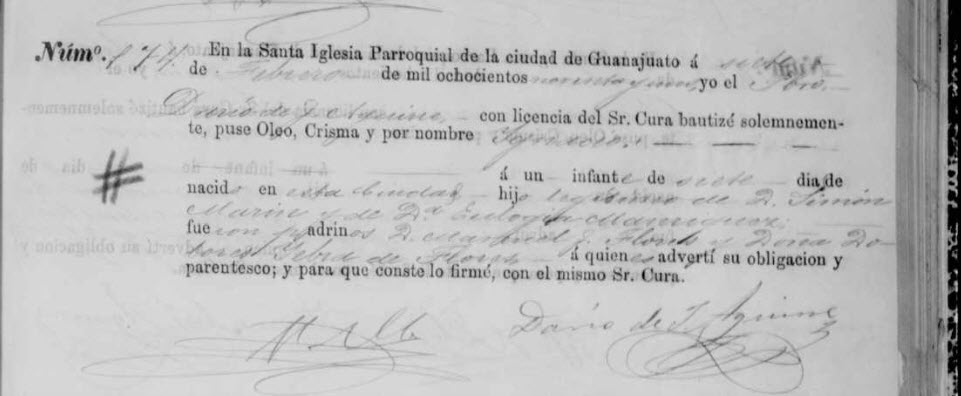 Núm. 174. En la Santa Iglesia Parroquial de la ciudad de Guanajuato á siete
de Febrero de mil ochocientos noventa y uno, yo el Pbro.
Dario de J. Aguirre, con licencia del Sr. Cura bautizé solemnemen-
te, puse Oleo, Crisma y por nombre Ignacio.
á un infante de siete dias de
nacido en esta Ciudad hijo legítimo de D. Simón
Marin y de Da. Eulogia Manriquez;
fueron padrinos D. Manuel J. Flores y Doña Do-
lores de Flores á quienes advertí su obligacion y
parentesco; y para que conste lo firmé, con el mismo Sr. Cura.
Dario de J. Aguirre